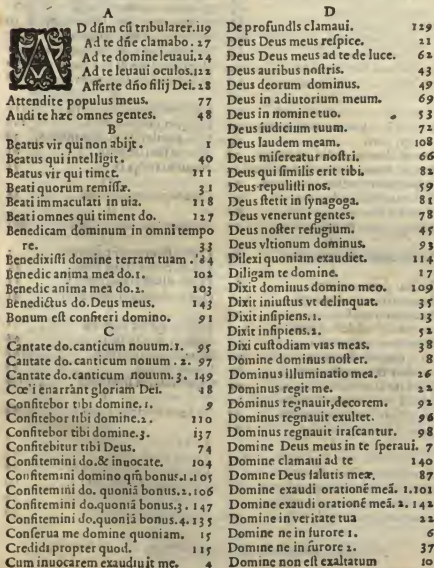 A
AD dñm cũ tribularer. 119
Ad te dñe clamabo. 27
Ad te domine leuaui. 24
Ad te leuaui oculos. 122
Afferte dño filij Dei. 28
Attendite populus meus. 77
Audite hæc omnes gentes. 48
B
Beatus vir qui non abijt. 1
Beatus qui intelligit. 40
Beatus vir qui timet. 111
Beati quorum remissæ. 31
Beati immaculati in uia. 118
Beati omnes qui timent do. 127
Benedicam dominum in omni tempo
re. 33
Benedixisti domine terram tuam. 84
Benedic anima mea do. 1. 102
Benedic anima mea do. 2. 103
Benedictus do. Deus meus. 143
Bonum est confiteri domino. 91
C
Cantate do. canticum nouum. 1. 95
Cantate do. canticum nouum. 2. 97
Cantate do. canticum nouum. 3. 149
Cœli enarrant gloriam Dei. 18
Confitebor tibi domine. 1. 9
Confitebor tibi domine. 2. 110
Confitebor tibi domine. 3. 137
Confitebitur tibi Deus. 74
Confitemini do. & inuocate. 104
Confitemini domino qm̃ bonus. 1. 105
Confitemini do. quoniã bonus. 2. 106
Confitemini do. quoniã bonus. 3. 147
Confitemini do. quoniã bonus. 4. 135
Conserua me domine quoniam. 15
Credidi propter quod. 115
Cum inuocarem exaudiuit me. 4
D
De profundis clamaui. 129
Deus Deus meus respice. 21
Deus Deus meus ad te de luce. 62
Deus auribus nostris. 43
Deus deorum dominus. 49
Deus in adiutorium meum. 69
Deus in nomine tuo. 53
Deus iudicium tuum. 72
Deus laudem meam. 108
Deus misereatur nostri. 66
Deus qui similis erit tibi. 82
Deus repulisti nos. 59
Deus stetit in synagoga. 81
Deus venerunt gentes. 78
Deus noster refugium. 45
Deus vltionum dominus. 93
Dilexi quoniam exaudiet. 114
Diligam te domine. 17
Dixit dominus domino meo. 109
Dixit iniustus vt delinquat. 35
Dixit insipiens. 1. 13
Dixit insipiens. 2. 52
Dixi custodiam vias meas. 38
Domine dominus noster. 8
Dominus illuminatio mea. 26
Dominus regit me. 22
Dominus regnauit, decorem. 92
Dominus regnauit exultet. 96
Dominus regnauit irascantur. 98
Domine Deus meus in te speraui. 7
Domine clamaui ad te 140
Domine Deus salutis meæ. 87
Domine exaudi orationē meã. 1. 101
Domine exaudi orationē meã. 2. 142
Domine in veritate tua 22
Domine ne in furore 1. 6
Domine ne in furore 2. 37
Domine non est exaltatum 10